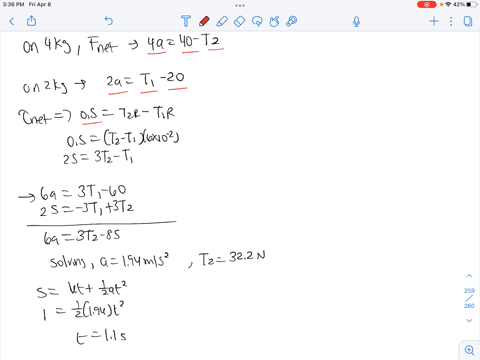 3:36 PM Fri Apr 8
42%
on 4kg, Fnet → 4a = 40 - T2
on 2kg → 2a = T1 - 20
τnet => 0.5 = T2R - T1R
0.5 = (T2 - T1)(6×10^-2)
25 = 3T2 - T1
→ 6a = 3T1 - 60
25 = -3T1 + 3T2
6a = 3T2 - 85
solving, a = 1.94 m/s², T2 = 32.2 N
s = ut + ½at²
1 = ½(1.94)t²
t = 1.1 s
259
260